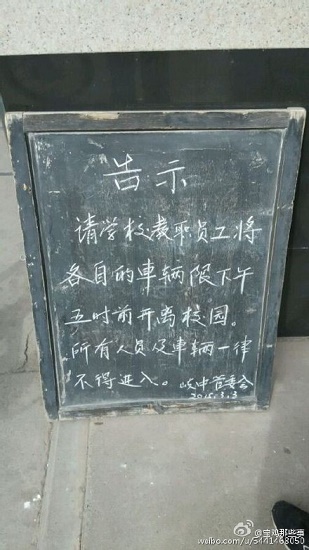 告示
请学校教职员工将
各自的車辆限下午
五时前开离校园。
所有人员及車辆一律
不得进入。岐中管委会
2015.3.3
@宝鸡那些事
weibo.com/u/5441468050